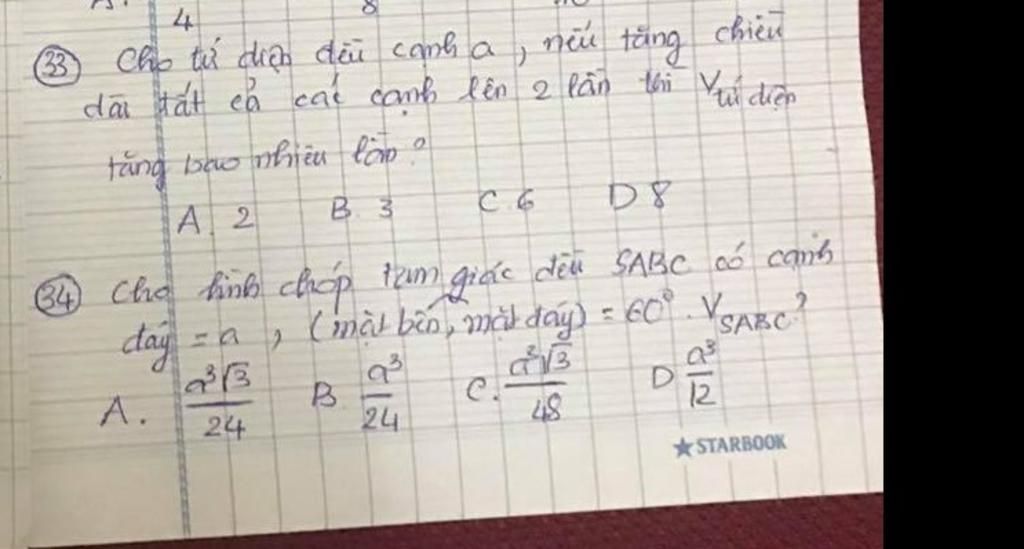 4 8
33 Cho tứ diện đều cạnh a, nếu tăng chiều
dài tất cả các cạnh lên 2 lần thì V tứ diện
tăng bao nhiêu lần?
A. 2 B. 3 C. 6 D 8
34 Cho hình chóp tam giác đều SABC có cạnh
đáy = a, (mặt bên, mặt đáy) = 60°. V SABC?
A. a³√3/24 B. a³/24 C. a³√3/48 D a³/12
★ STARBOOK